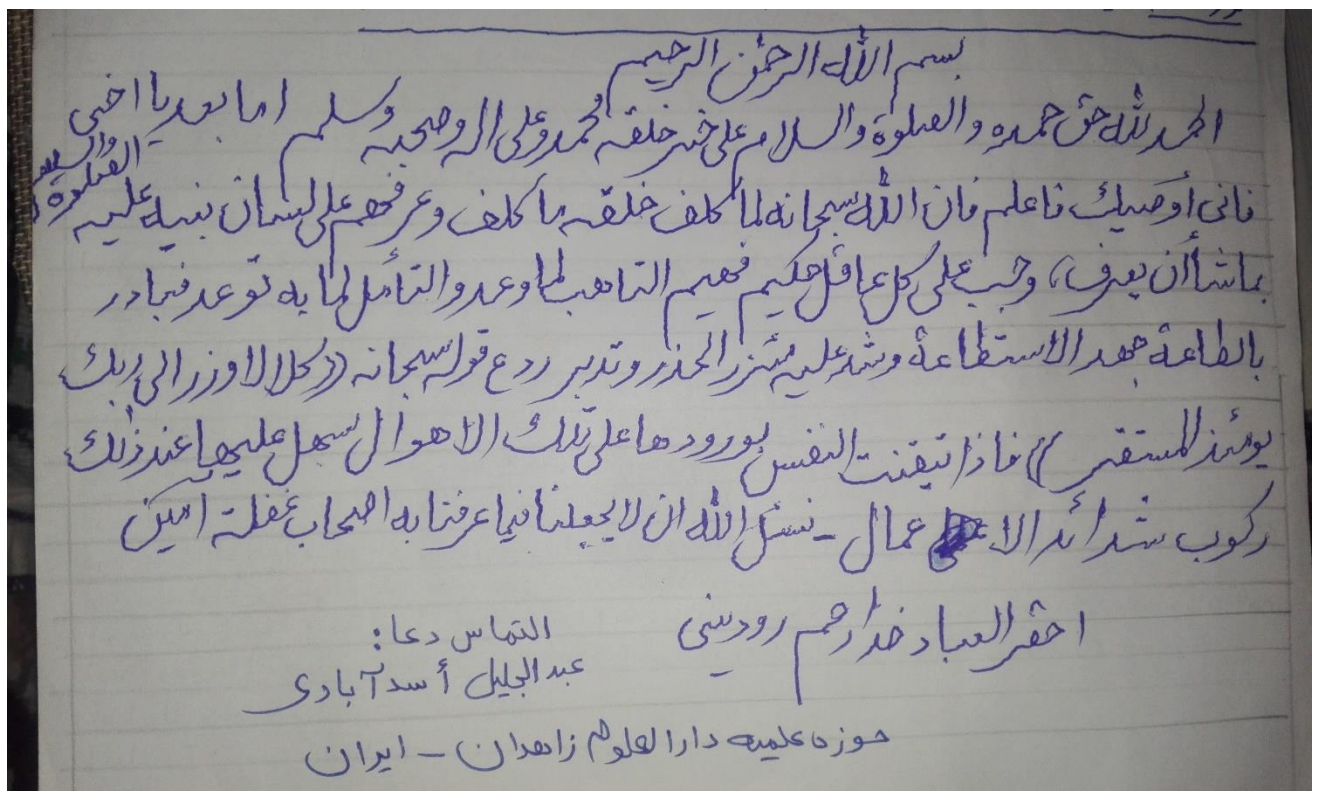 بسم الله الرحمٰن الرحيم
الحمد لله حق حمده والصلوة والسلام على خير خلقه محمد وعلى اله وصحبه وسلم اما بعد يا اخى
فانى أوصيك فاعلم فان الله سبحانه لما كلف خلقه ما كلف وعرفهم على لسان نبيه عليه الصلوة والسلام
بماشاأن يعرف، وجب على كل عاقل حكيم فهيم التاهب لما وعد والتأمل لما به توعد فيبادر
بالطاعة جهد الاستطاعة وشد عليه مئزر الحذر وتدبر ردع قوله سبحانه ((كلا لا وزر الى ربك
يومئذ المستقر)) فاذا تيقنت النفس بورودها على تلك الاهوال سهل عليها عند ذٰلك
ركوب شدائد الاعمال - نسئل الله ان لا يجعلنا فيما عرفنا به اصحاب غفلة آمين
احقر العباد خدارحم رودينى
التماس دعا:
عبدالجليل أسدآبادى
حوزه علميه دارالعلوم زاهدان - ايران